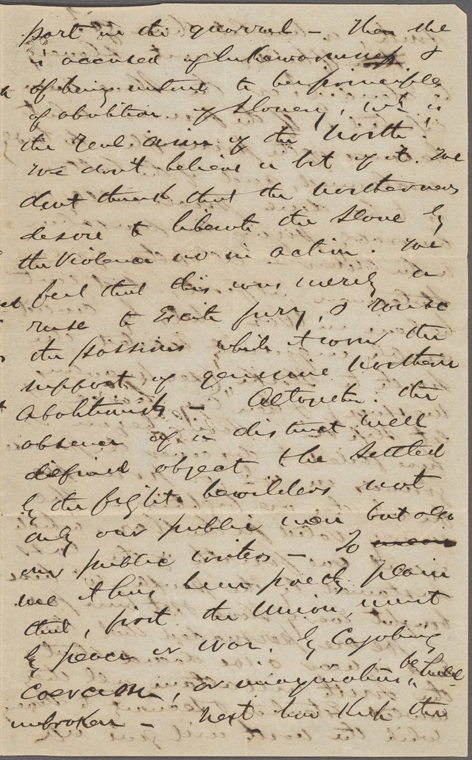 part in the quarrel — Then she
is accused of lukewarmness &
of being untrue to her principles
of abolition of slavery, wh: is
the real aim of the North.
We don't believe a bit of it. We
dont think that the northerners
desire to liberate the slave by
the violence now in action. We
feel that this was merely a
ruse to excite fury, & rouse
the passions while it won the
support of genuine Northern
Abolitionists — Altogether the
absence of a distinct well
defined object to be settled
by the fight bewilders not
only our public men but also
our public writers — To
me it has been pretty plain
that, first the Union must
by peace or war, by cajoling
coercion, or imagination, be held
unbroken — next how the